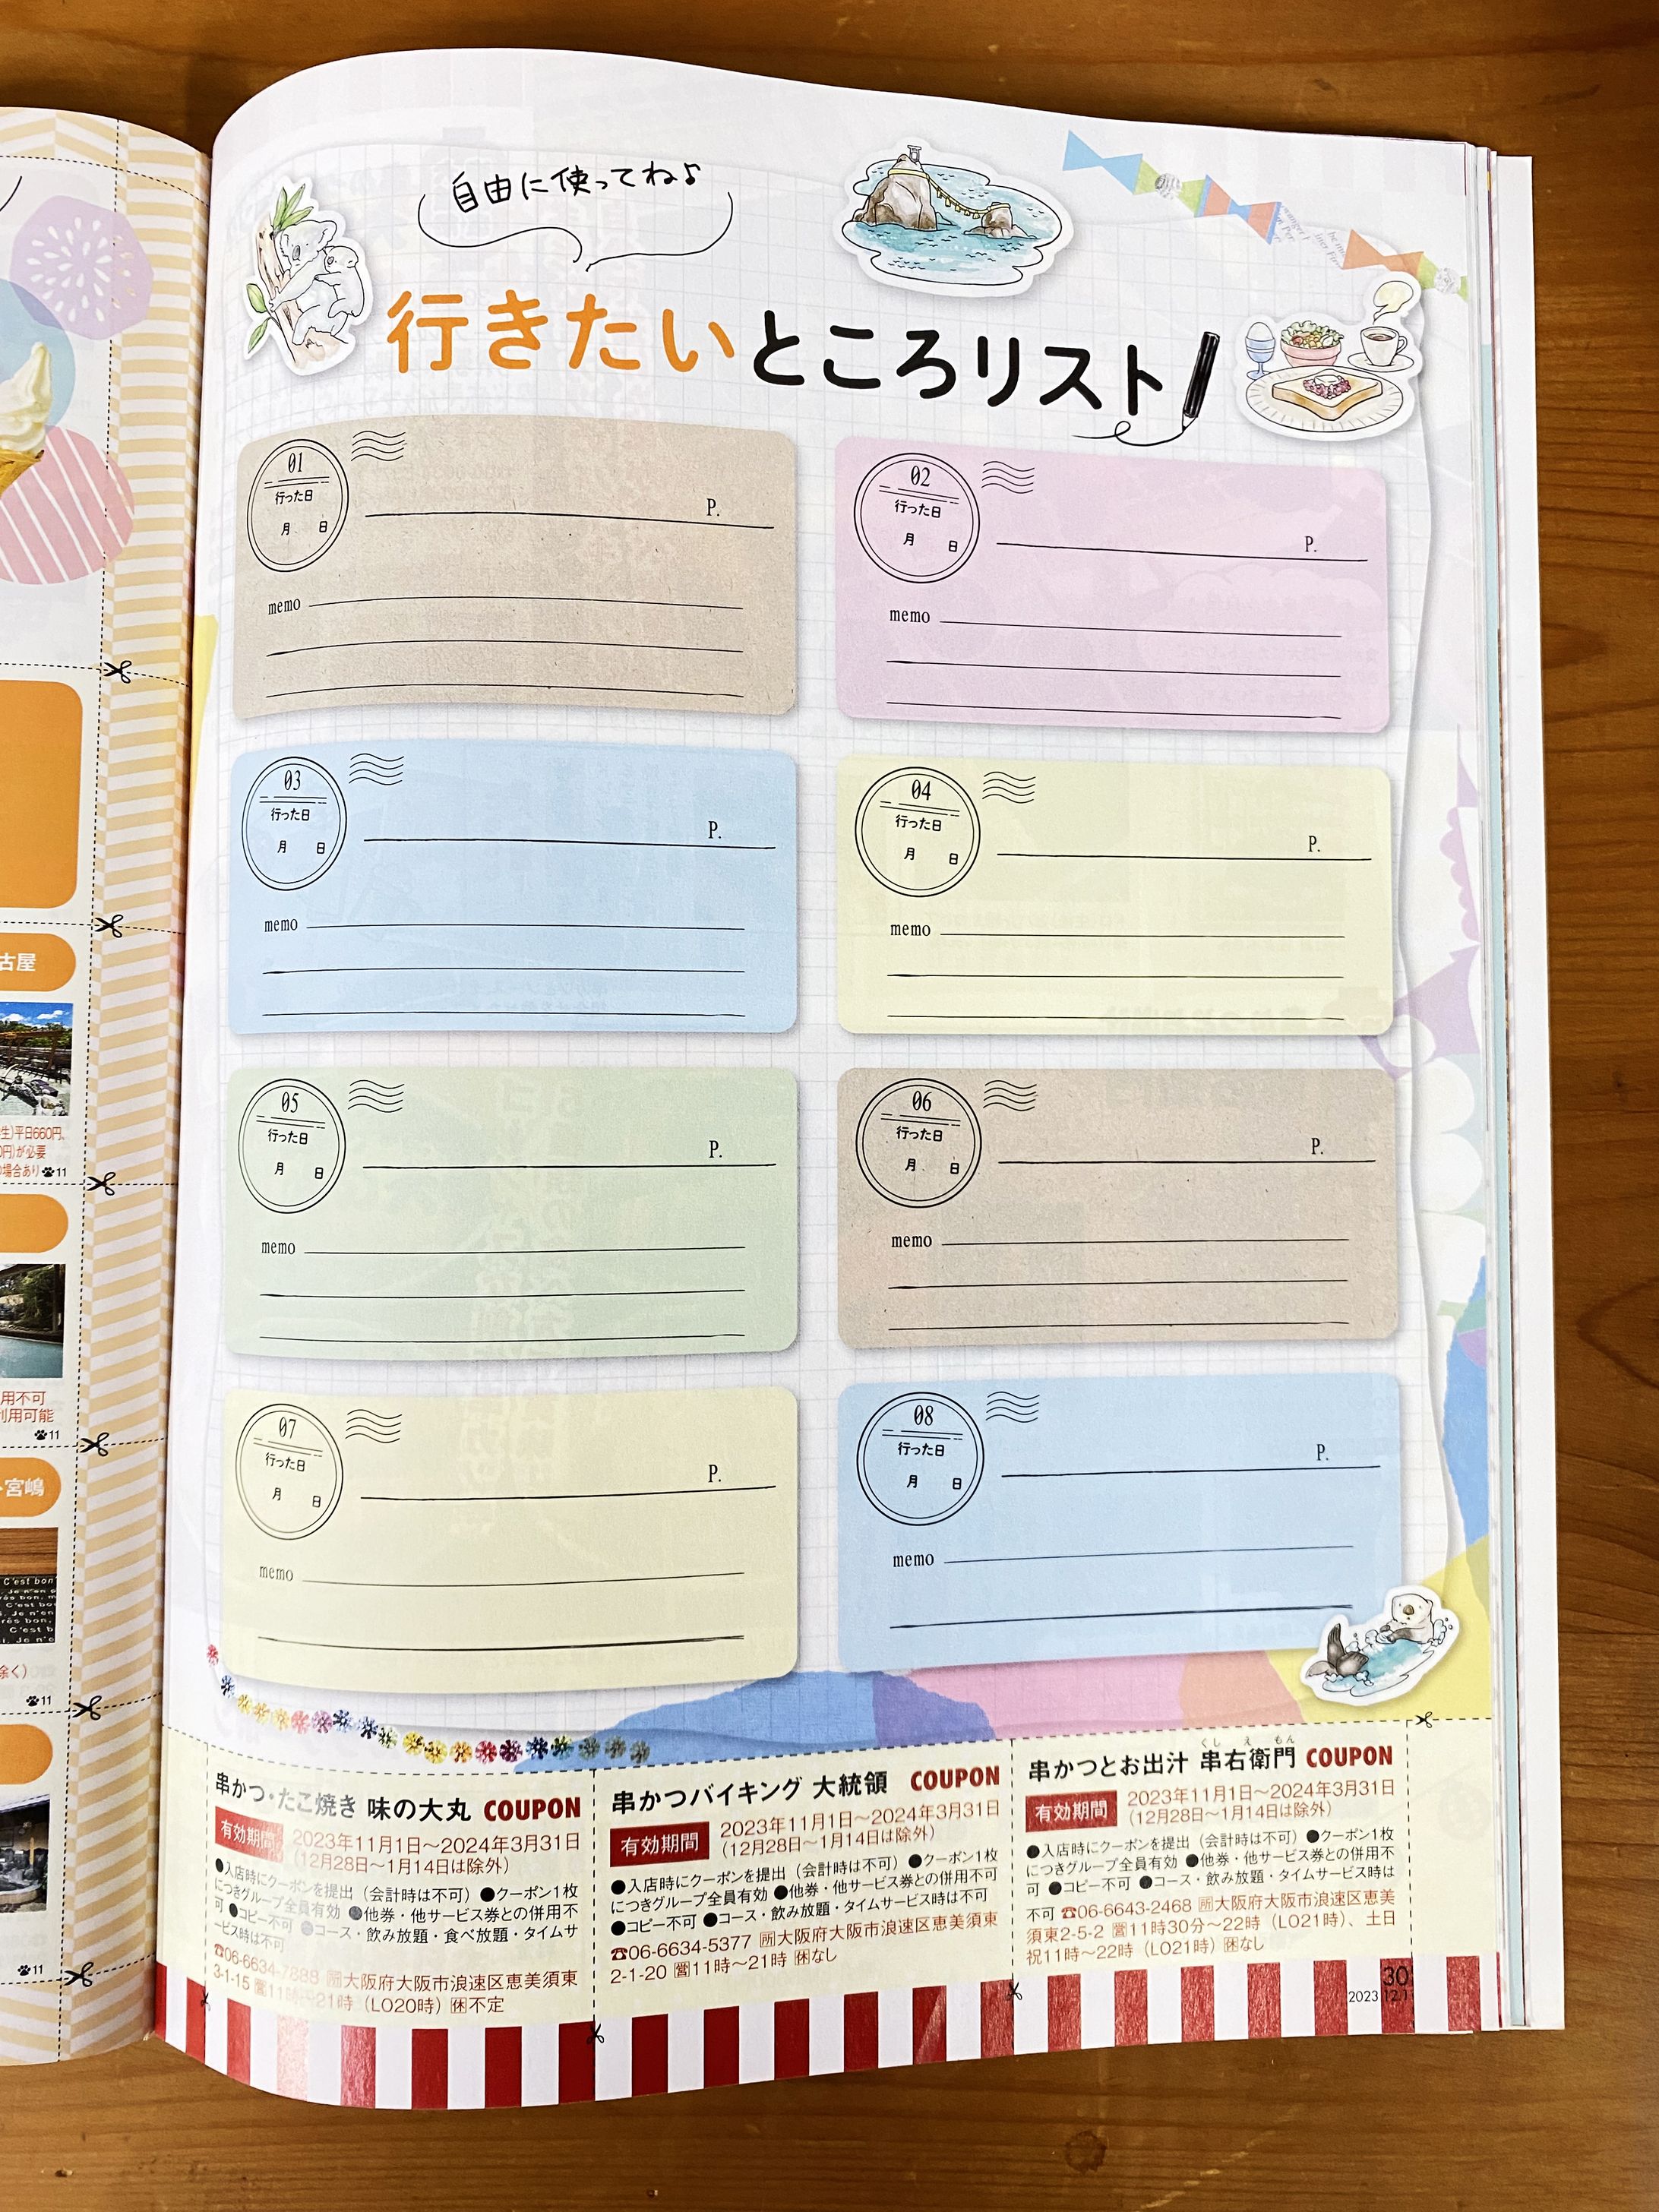 自由に使ってね♪
行きたいところリスト
01
行った日
月 日
P.
memo
02
行った日
月 日
P.
memo
03
行った日
月 日
P.
memo
04
行った日
月 日
P.
memo
05
行った日
月 日
P.
memo
06
行った日
月 日
P.
memo
07
行った日
月 日
P.
memo
08
行った日
月 日
P.
memo
串かつ・たこ焼き 味の大丸 COUPON
有効期間 2023年11月1日～2024年3月31日
(12月28日～1月14日は除外)
●入店時にクーポンを提出（会計時は不可）●クーポン1枚
につきグループ全員有効 ●他券・他サービス券との併用不
可 ●コピー不可 ●コース・飲み放題・食べ放題・タイムサ
ービス時は不可
☎06-6634-7888 所大阪府大阪市浪速区恵美須東
3-1-15 営11時～21時（LO20時）休不定
串かつバイキング 大統領 COUPON
有効期間 2023年11月1日～2024年3月31日
(12月28日～1月14日は除外)
●入店時にクーポンを提出（会計時は不可）●クーポン1枚
につきグループ全員有効 ●他券・他サービス券との併用不可
●コピー不可 ●コース・飲み放題・タイムサービス時は不可
☎06-6634-5377 所大阪府大阪市浪速区恵美須東
2-1-20 営11時～21時 休なし
くし え もん
串かつとお出汁 串右衛門 COUPON
有効期間 2023年11月1日～2024年3月31日
(12月28日～1月14日は除外)
●入店時にクーポンを提出（会計時は不可）●クーポン1枚
につきグループ全員有効 ●他券・他サービス券との併用不
可 ●コピー不可 ●コース・飲み放題・タイムサービス時は
不可 ☎06-6643-2468 所大阪府大阪市浪速区恵美
須東2-5-2 営11時30分～22時（LO21時）、土日
祝11時～22時（LO21時）休なし
30
2023.12.1
古屋
生)平日660円、
0円)が必要
場合あり 11
用不可
利用可能
11
宮嶋
C'est bon
除く）
11
11